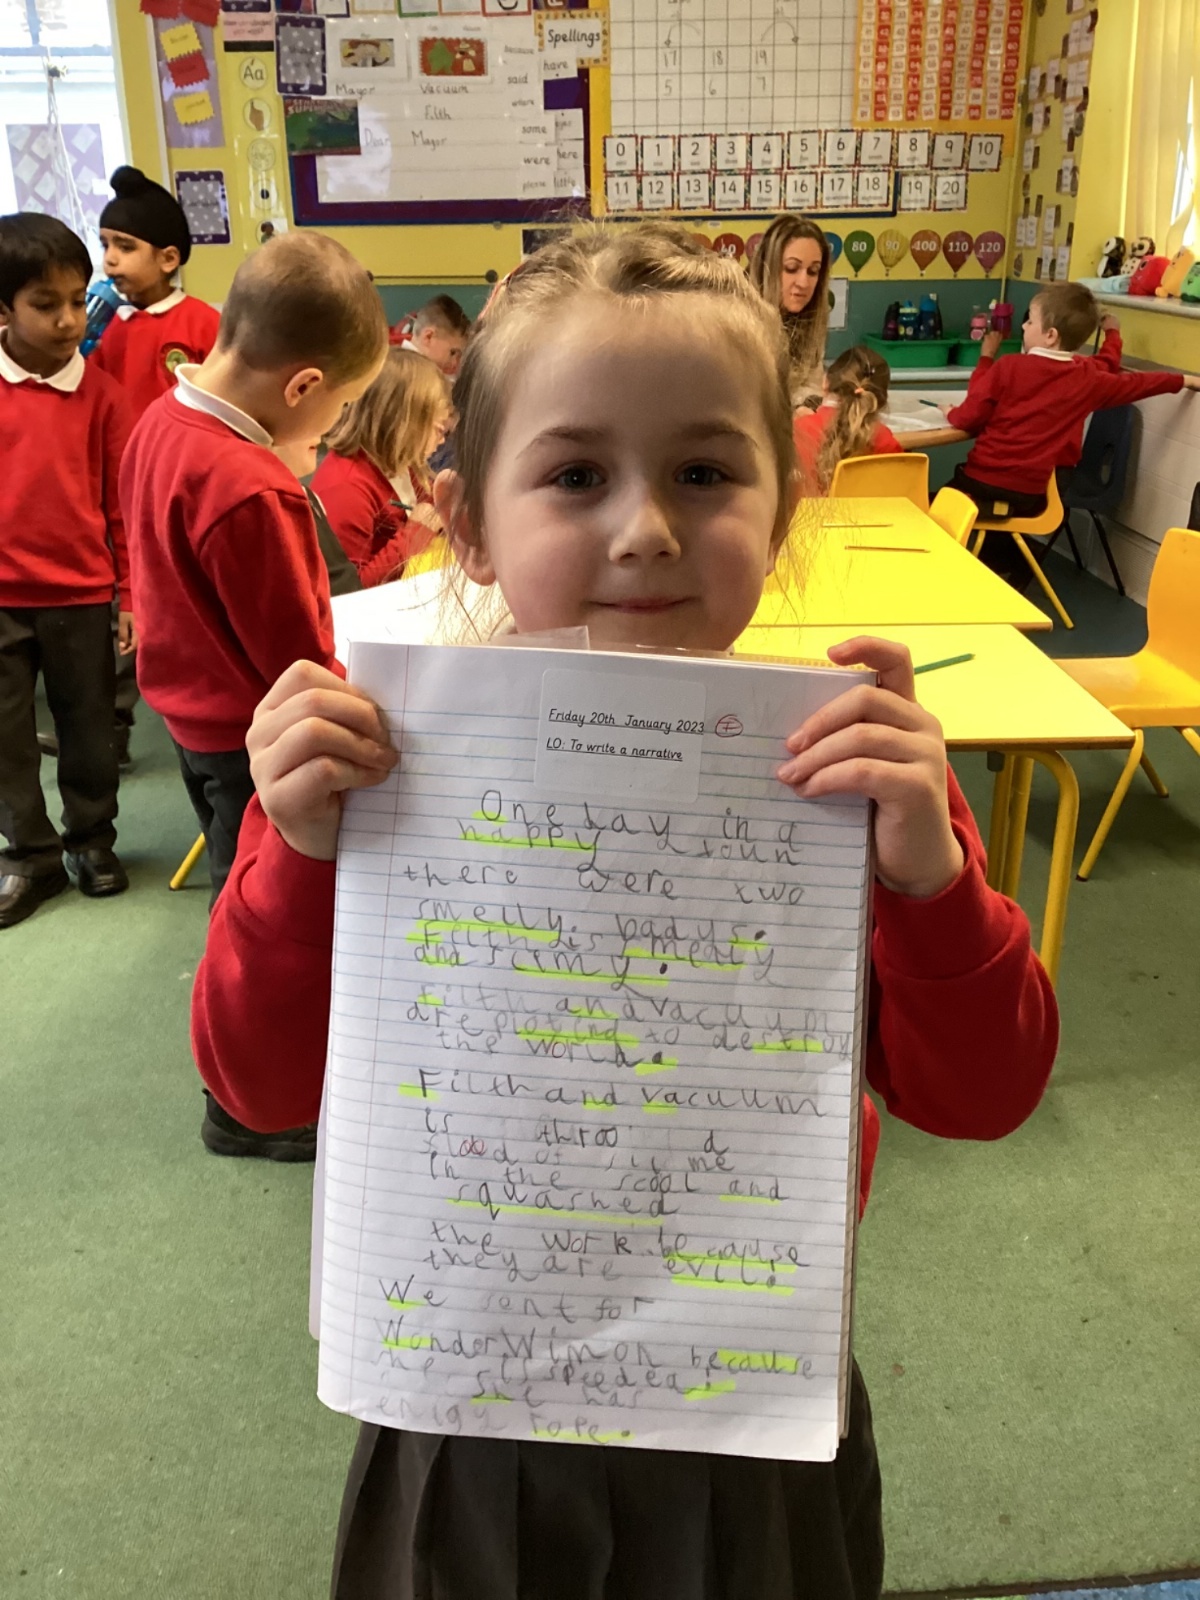 Spellings
because
have
said
where
some
were
here
please
little
Mayor
Vacuum
Filth
Dear Mayor
Aa
17 18 19
5 6 7
0 1 2 3 4 5 6 7 8 9 10
11 12 13 14 15 16 17 18 19 20
80 90 100 110 120
Friday 20th January 2023
LO: To write a narrative
One day in a
happy toun
there were two
smelly badys.
Filth is meaty
and slimy.
Filth and vacuum
are ploting to destroy
the world.
Filth and vacuum
is throo d
flood of slime
in the scool and
squashed
the work because
they are evil!
We sent for
Wonder Wimon because
she is speedea!
she has
enigy rope.